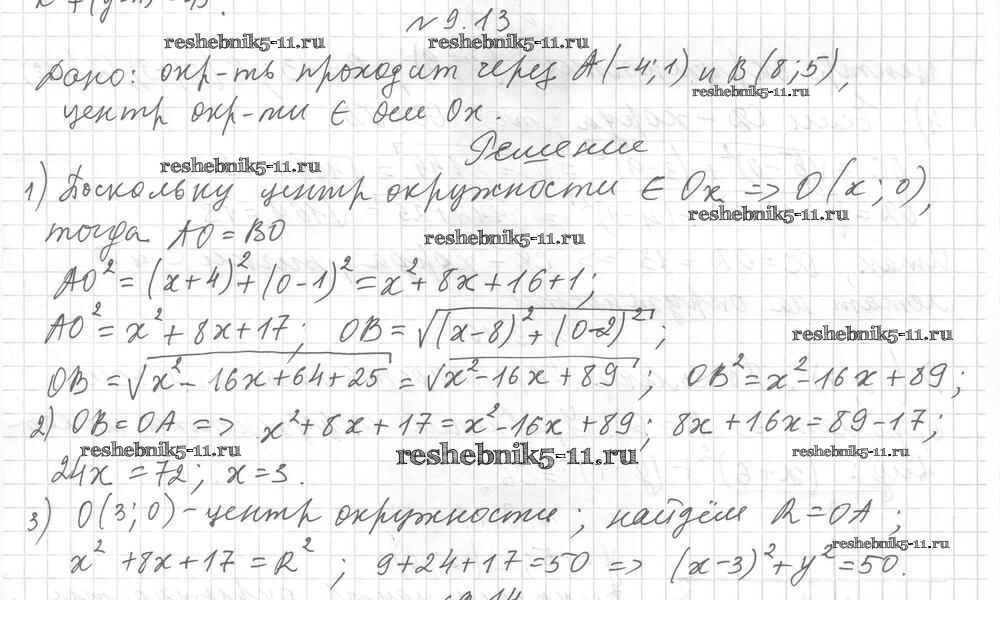 № 9.13
reshebnik5-11.ru reshebnik5-11.ru
Дано: окр-ть проходит через A(-4; 1) и B(8; 5),
reshebnik5-11.ru
центр окр-ти ∈ оси Ox.
Решение
reshebnik5-11.ru
1) Поскольку центр окружности ∈ Ox => O(x; 0),
reshebnik5-11.ru
тогда AO = BO
reshebnik5-11.ru
AO² = (x+4)² + (0-1)² = x² + 8x + 16 + 1;
AO² = x² + 8x + 17; OB = √((x-8)² + (0-2)²);
reshebnik5-11.ru
OB = √(x² - 16x + 64 + 25) = √(x² - 16x + 89); OB² = x² - 16x + 89;
2) OB = OA => x² + 8x + 17 = x² - 16x + 89; 8x + 16x = 89 - 17;
reshebnik5-11.ru reshebnik5-11.ru reshebnik5-11.ru
24x = 72; x = 3.
3) O(3; 0) - центр окружности; найдём R = OA;
reshebnik5-11.ru
x² + 8x + 17 = R²; 9 + 24 + 17 = 50 => (x-3)² + y² = 50.